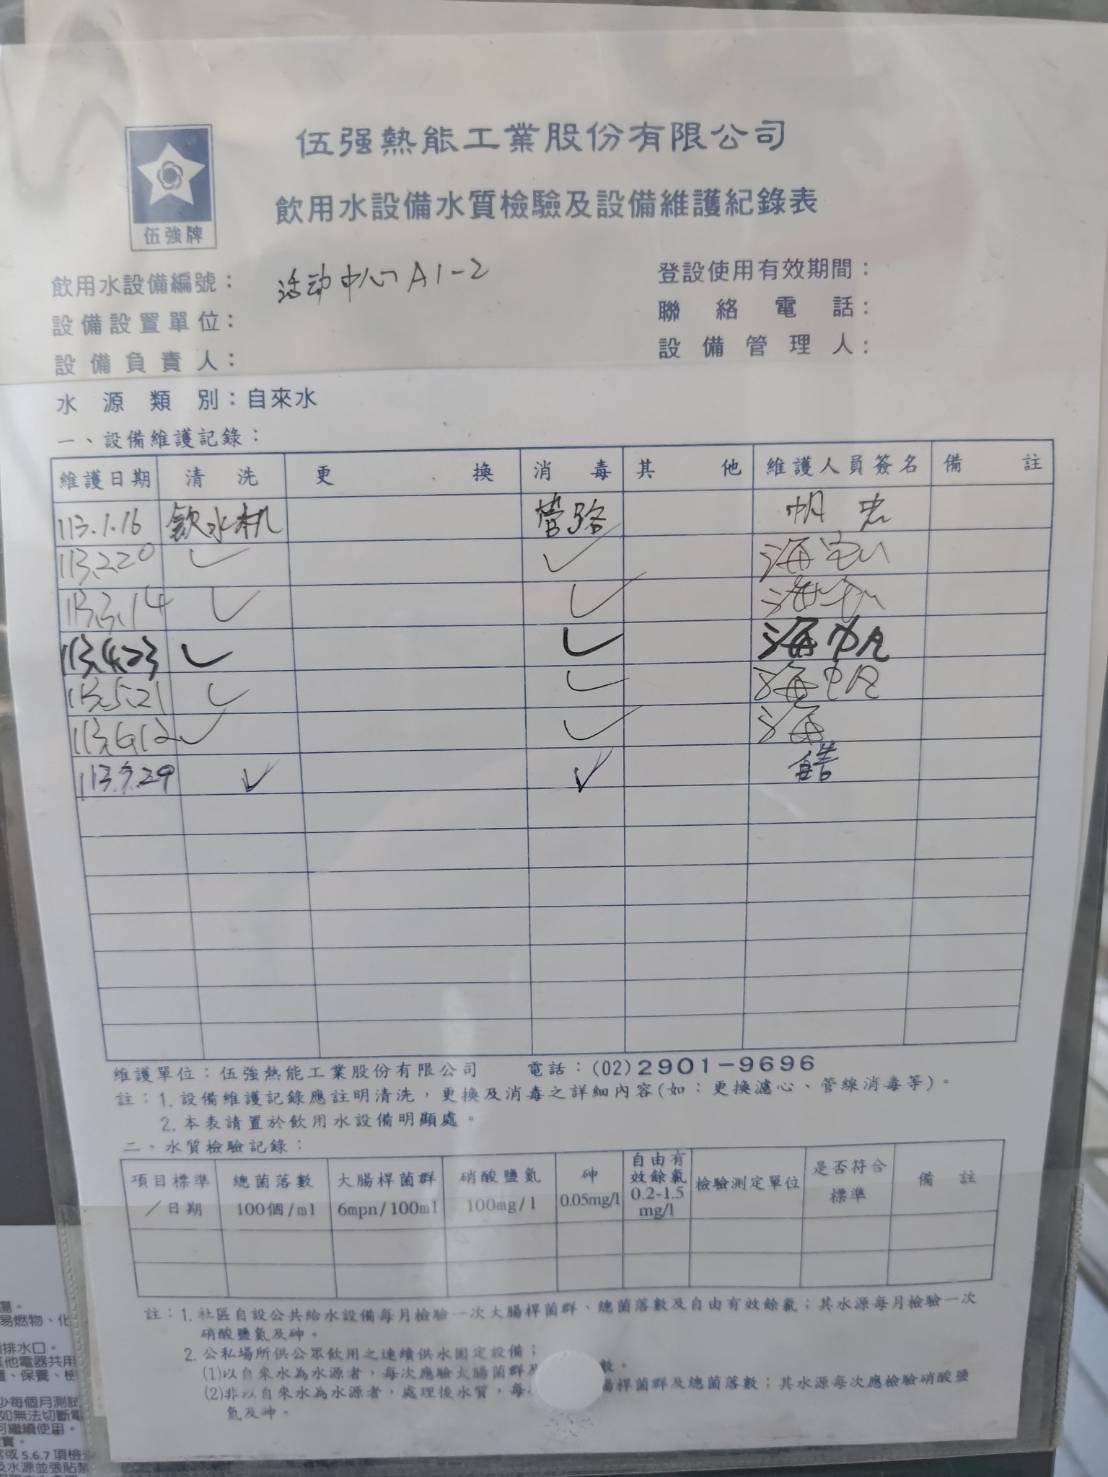 伍强熱能工業股份有限公司
飲用水設備水質檢驗及設備維護紀錄表
伍強牌
飲用水設備編號： 活动中心 A1-2
登設使用有效期間：
設備設置單位：
聯絡電話：
設備負責人：
設備管理人：
水源類別：自來水
一、設備維護記錄：
維護日期 清洗 更換 消毒 其他 維護人員簽名 備註
113.1.16 飲水机 管路
113.2.20 ✓ ✓ 海
113.3.14 ✓ ✓ 海
113.4.23 ✓ ✓ 海帆
113.5.21 ✓ ✓ 海帆
113.6.12 ✓ ✓ 海
113.7.29 ✓ ✓
維護單位：伍強熱能工業股份有限公司 電話：(02)2901-9696
註：1.設備維護記錄應註明清洗，更換及消毒之詳細內容(如：更換濾心、管線消毒等)。
2.本表請置於飲用水設備明顯處。
二、水質檢驗記錄：
項目標準／日期 總菌落數 100個/ml 大腸桿菌群 6mpn/100ml 硝酸鹽氮 100mg/l 砷 0.05mg/l 自由有效餘氯 0.2-1.5 mg/l 檢驗測定單位 是否符合標準 備註
註：1.社區自設公共給水設備每月檢驗一次大腸桿菌群、總菌落數及自由有效餘氯；其水源每月檢驗一次
硝酸鹽氮及砷。
2.公私場所供公眾飲用之連續供水固定設備；
(1)以自來水為水源者，每次應驗大腸菌群及 數。
(2)非以自來水為水源者，處理後水質，每 腸桿菌群及總菌落數；其水源每次應檢驗硝酸鹽
氮及砷。
易燃物、化
排水口。
他電器共用
、保養、檢
少每個月測試
如無法切斷電
可繼續使用。
或 5.6.7 項檢
水源並張貼